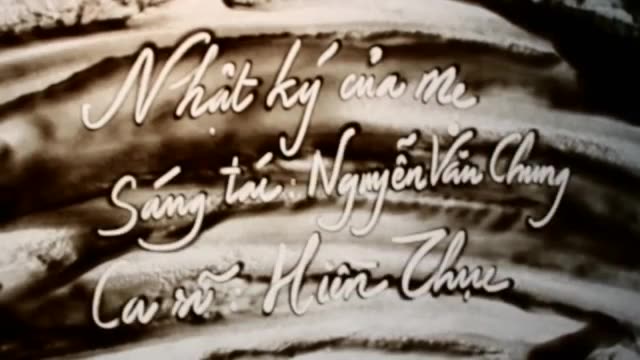 Nhật ký của mẹ
Sáng tác: Nguyễn Văn Chung
Ca sĩ: Hiền Thục